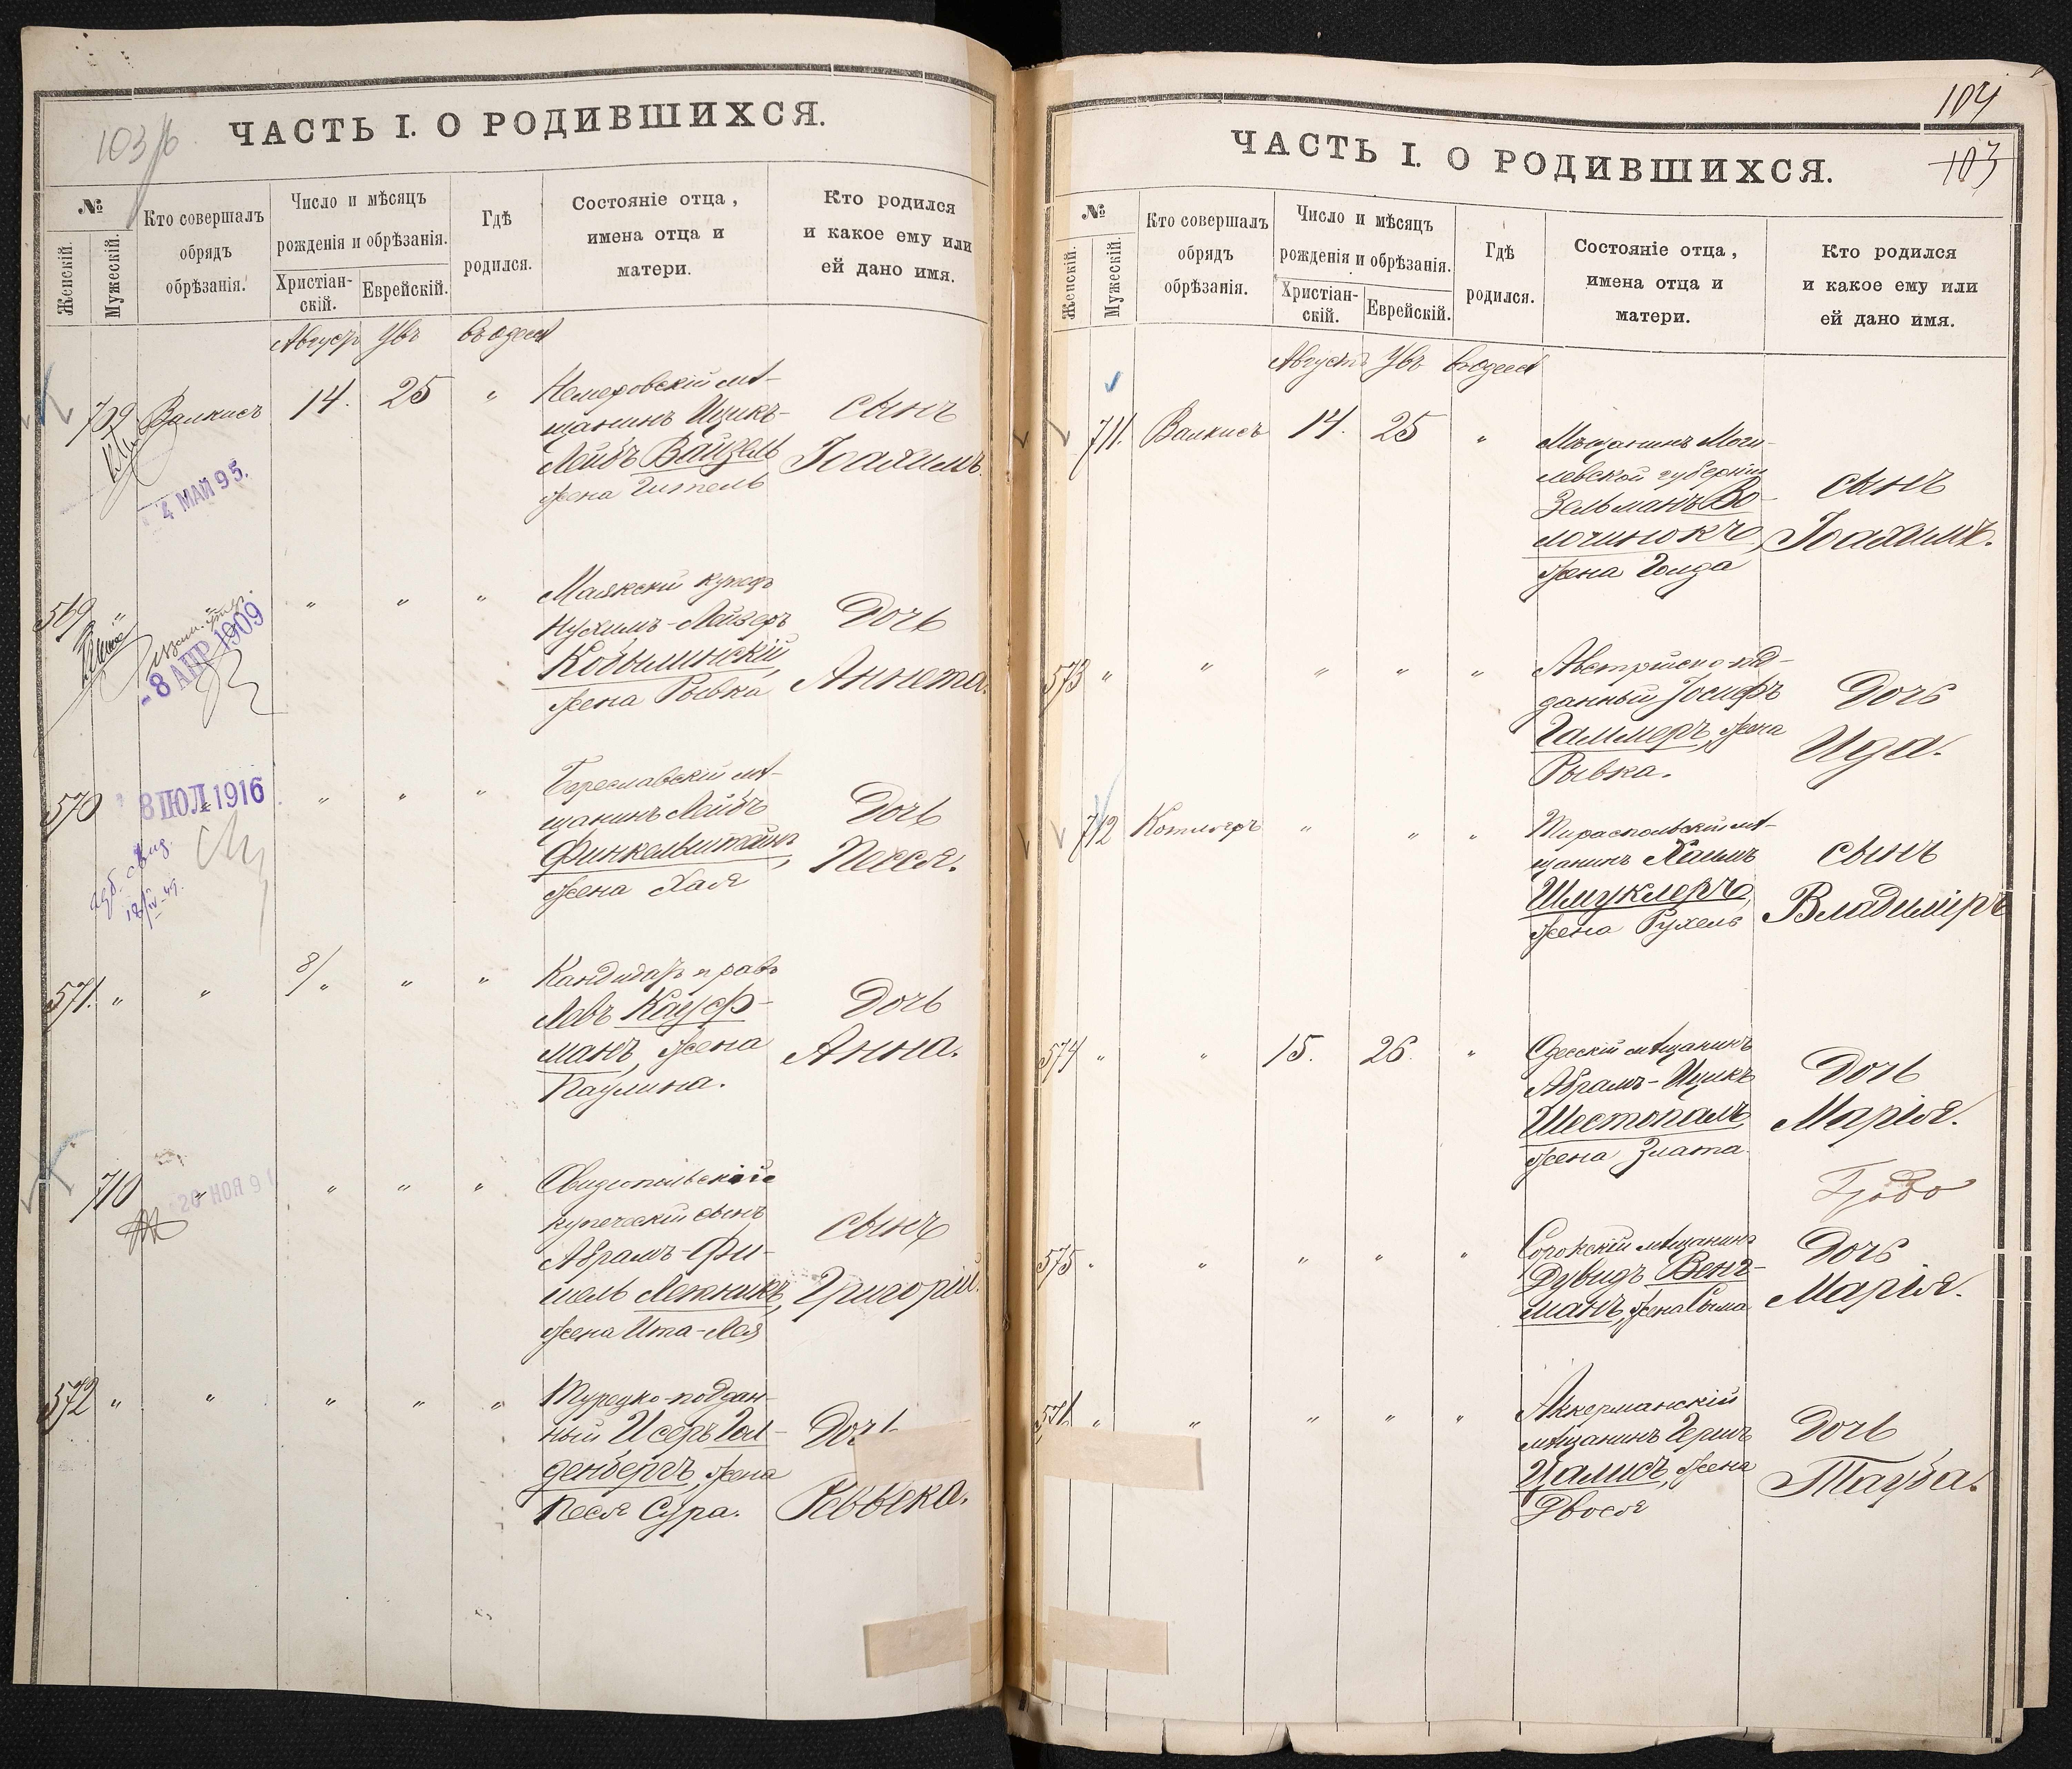 103/б
ЧАСТЬ I. О РОДИВШИХСЯ.
№
Женскій.
Мужескій.
Кто совершалъ
обрядъ
обрѣзанія.
Число и мѣсяцъ
рожденія и обрѣзанія.
Христіан-
скій.
Еврейскій.
Гдѣ
родился.
Состояніе отца,
имена отца и
матери.
Кто родился
и какое ему или
ей дано имя.
Августъ
709 Валкисъ 14. 25 "
4 МАЙ 95.
Немировскій мѣ-
щанинъ Ицикъ-
Лейбъ Вайцель
жена Гитель
сынъ
Іоахимъ.
569 " " " "
-8 АПР 1909
Маякскій купецъ
Нухимъ-Лейзеръ
Кобылинскій,
жена Рывка
Дочь
Аннета.
570 " " "
8 ІЮЛ 1916
Береславскій мѣ-
щанинъ Лейбъ
Финкельштейнъ,
жена Хая
Дочь
Песся.
571. " " 8/" " "
Кандидатъ правъ
Левъ Кауф-
манъ, жена
Паулина.
Дочь
Анна.
710 " " " "
20 НОЯ 91
Овидіопольскій
купеческій сынъ
Абрамъ-Фи-
шель Лежникъ,
жена Ита-Лея
сынъ
Григорій.
572 " " " " "
Турецко-поддан-
ный Исеръ Гол-
денбергъ, жена
Песя Сура.
Дочь
Ревекка.
104
103
ЧАСТЬ I. О РОДИВШИХСЯ.
№
Женскій.
Мужескій.
Кто совершалъ
обрядъ
обрѣзанія.
Число и мѣсяцъ
рожденія и обрѣзанія.
Христіан-
скій.
Еврейскій.
Гдѣ
родился.
Состояніе отца,
имена отца и
матери.
Кто родился
и какое ему или
ей дано имя.
Августъ
711. Валкисъ 14. 25 "
Мѣщанинъ Моги-
левской губерніи
Зельманъ Во-
лочинокъ,
жена Голда
сынъ
Іоахимъ.
573 " " " " "
Австрійско-под-
данный Іосифъ
Галлмеръ, жена
Рывка.
Дочь
Ида.
712 " " "
Тираспольскій мѣ-
щанинъ Хаимъ
Шмуклеръ,
жена Рухель
сынъ
Владиміръ
574 " " 15. 26. "
Одесскій мѣщанинъ
Абрамъ-Ицикъ
Шестопалъ,
жена Злата
Дочь
Марія.
575 " " " " "
Сорокскій мѣщанинъ
Дувидъ Венг-
манъ, жена Сыма
Дочь
Марія.
" " " " "
Аккерманскій
мѣщанинъ Гершъ
Цалисъ, жена
Двося
Дочь
Тауба.